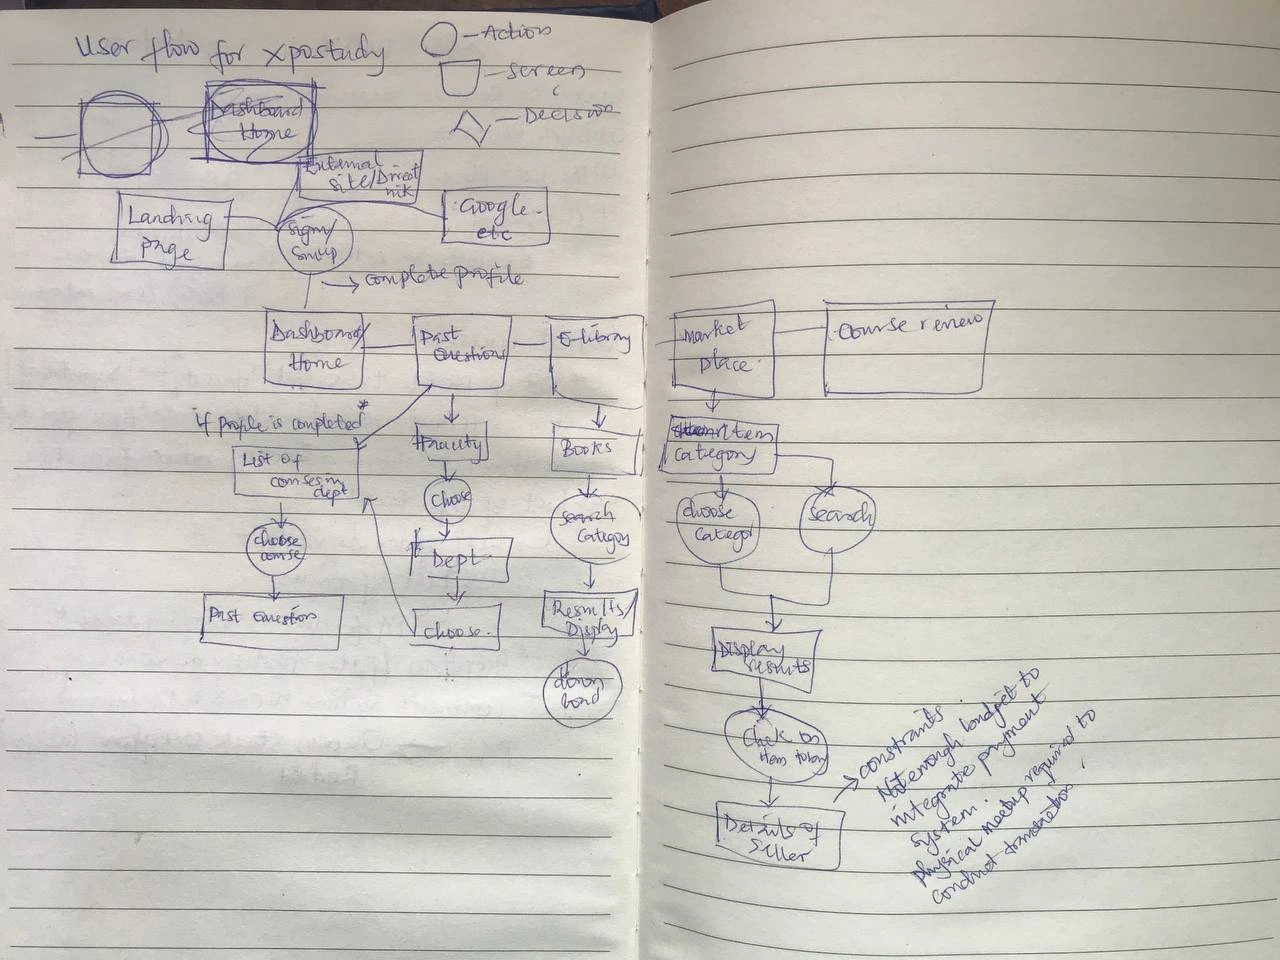 User flow for xpostudy
- Action
- Screen
- Decision
Dashboard
Home
External
site/Direct
Landing
page
Sign/
Google
etc
→ complete profile
Dashboard/
Home
Past
Questions
E-library
Market
place.
Course review
if profile is completed*
List of
courses in
dept
Faculty
Books
Item
Category
Choose
Search
Category
Choose
Categor
Search
Choose
course
Dept
Past Question
Choose.
Results/
Display
Display
results
down
load
Click on
item to buy
Details of
Seller
→ constraints.
Not enough budget to
integrate payment
system.
physical meetup required to
conduct transaction.